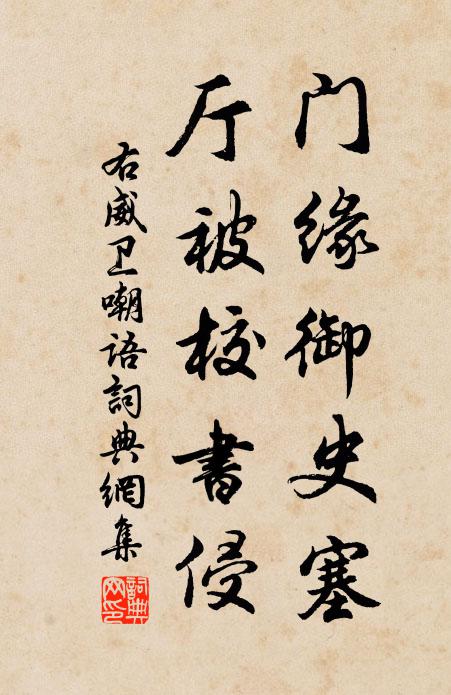 门缘御史塞
厅被校书侵
右威卫嘲语詞典網集
詞典
网印